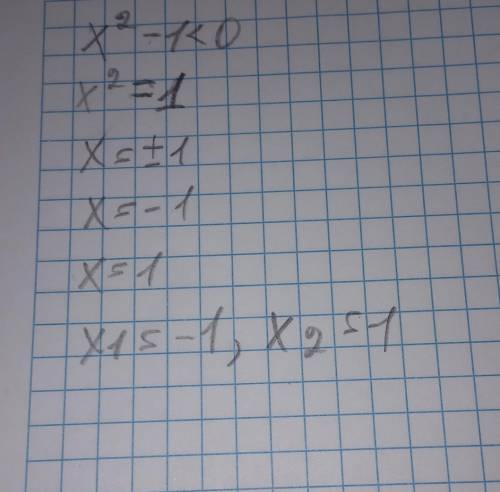 x² - 1 < 0
x² = 1
x = ± 1
x = - 1
x = 1
x1 = - 1, x2 = 1